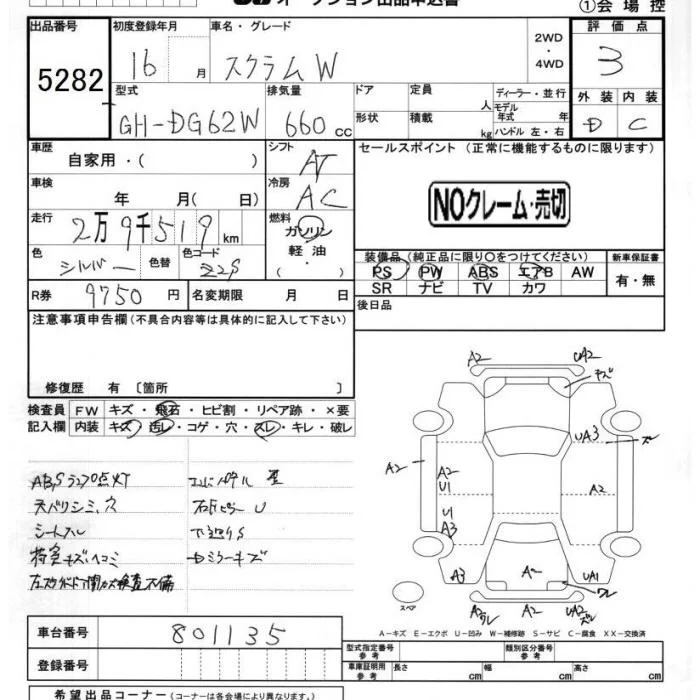 オークション出品申込書
①会場控
出品番号 初度登録年月 車名・グレード 評価点
5282 16 月 スクラムW 2WD ・ 4WD 3
型式 排気量 ドア 定員 人 ディーラー・並行 外装 内装
GH-DG62W 660 cc 形状 積載 kg モデル年式 年 ハンドル 左・右 D C
車歴 自家用・( ) シフト AT セールスポイント (正常に機能するものに限ります)
車検 年 月( 日) 冷房 AC
NOクレーム・売切
走行 2万9千519 km 燃料 ガソリン
軽油
( )
色 シルバー 色替 色コード Z2S
装備品(純正品に限り○をつけてください) 新車保証書
PS PW ABS エアB AW 有・無
SR ナビ TV カワ
R券 9750 円 名変期限 月 日
後日品
注意事項申告欄(不具合内容等は具体的に記入して下さい)
修復歴 有 〔箇所 〕
検査員 FW キズ・飛石・ヒビ割・リペア跡・×要
記入欄 内装 キズ・汚レ・コゲ・穴・スレ・キレ・破レ
ABSランプ点灯
天バリシミ、穴
シートスレ
A2 UA2
UA3
A2 A2 A2
U1
U1
A3
A3 A2 UA1
A2 A2 UA2
スペア
A-キズ E-エクボ U-凹み W-補修跡 S-サビ C-腐食 XX-交換済
車台番号 801135
登録番号
型式指定番号 参考 類別区分番号 参考
車庫証明用 参考 長さ cm 幅 cm 高さ cm
希望出品コーナー